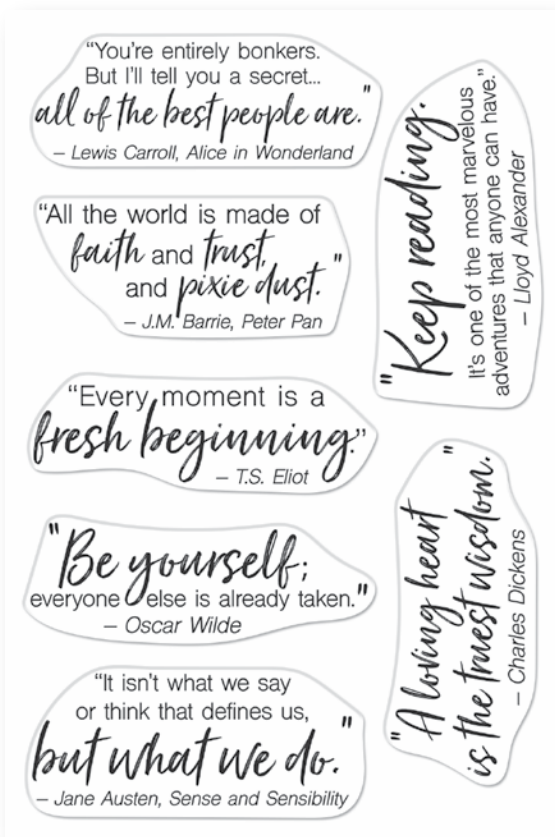 “You’re entirely bonkers.
But I’ll tell you a secret...
all of the best people are."
– Lewis Carroll, Alice in Wonderland
“All the world is made of
faith and trust,
and pixie dust."
– J.M. Barrie, Peter Pan
“Every moment is a
fresh beginning.”
– T.S. Eliot
"Be yourself;
everyone else is already taken."
– Oscar Wilde
“It isn’t what we say
or think that defines us,
but what we do."
– Jane Austen, Sense and Sensibility
"Keep reading.
It’s one of the most marvelous
adventures that anyone can have.”
– Lloyd Alexander
"A loving heart
is the truest wisdom."
– Charles Dickens